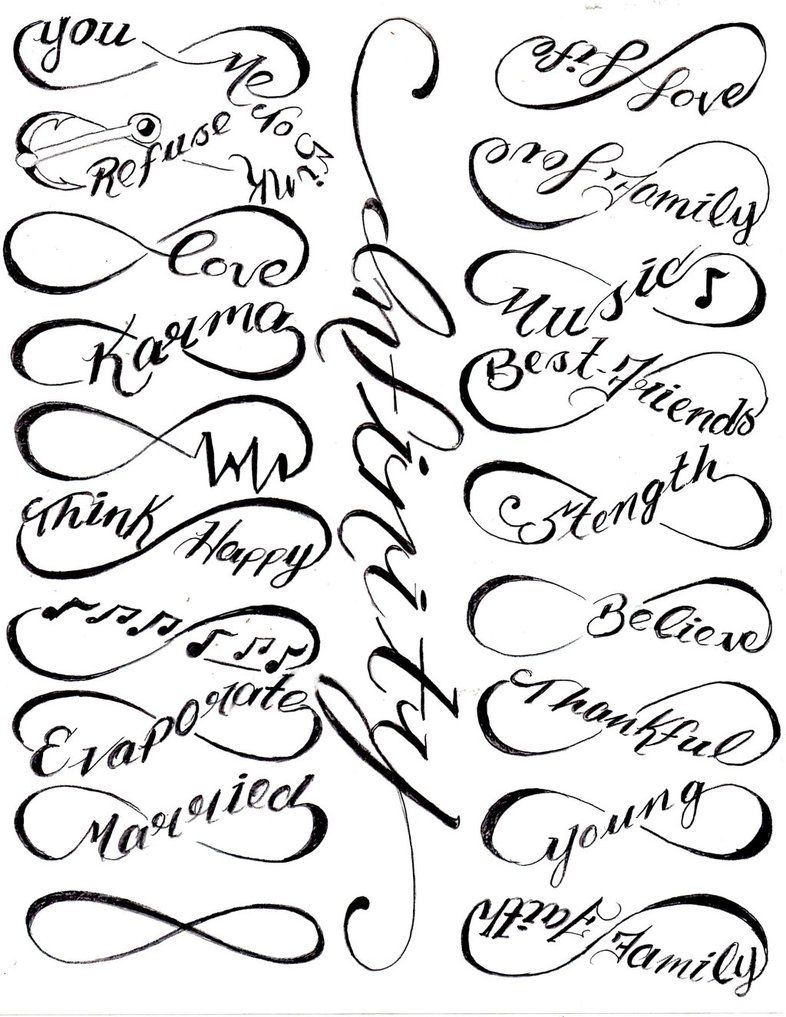 you Me
Refuse To Sink
love
Karma
Think Happy
Evaporate
Married
Infinity
Life Love
Love Family
Music
Best-Friends
Stength
Believe
Thankful
young
Faith Family